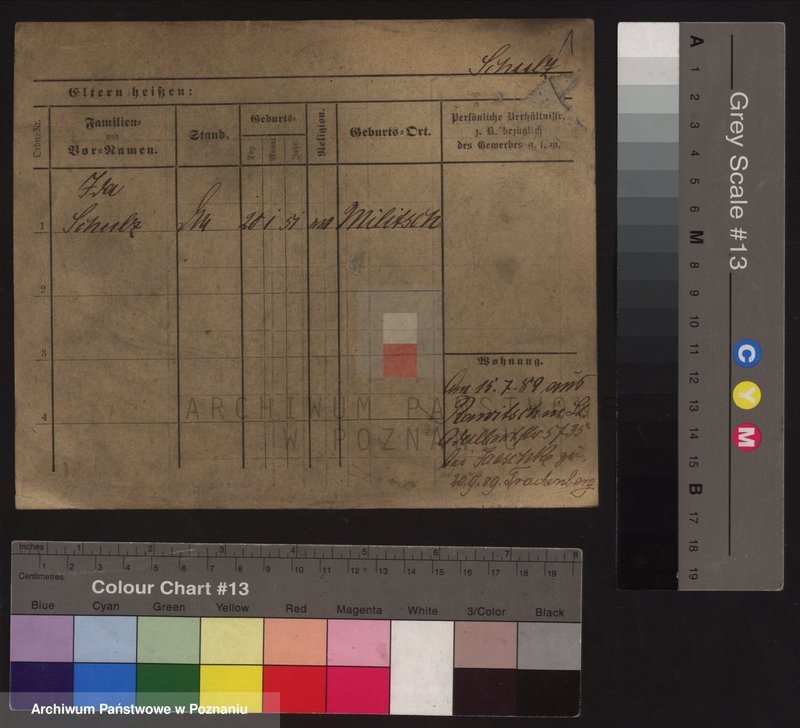 1
Schulz
Eltern heißen:
Ordn.-Nr.
Familien-
und
Vor-Namen.
Stand.
Geburts-
Tag.
Monat.
Jahr.
Religion.
Geburts-Ort.
Persönliche Verhältnisse,
z. B. bezüglich
des Gewerbes u. s. w.
Ida
1 Schulz 20 1 51 Militsch
2
3
4
Wohnung.
15.7.89 aus
Rawitsch
57 35
bei zu.
20.9.89. Trachenberg
ARCHIWUM PAŃSTWOWE
W POZNANIU
Grey Scale #13
A 1 2 3 4 5 6 M 8 9 10 11 12 13 14 15 B 17 18 19
C Y M
Inches 1 2 3 4 5 6 7 8
Centimetres 1 2 3 4 5 6 7 8 9 10 11 12 13 14 15 16 17 18 19
Colour Chart #13
Blue Cyan Green Yellow Red Magenta White 3/Color Black
Archiwum Państwowe w Poznaniu